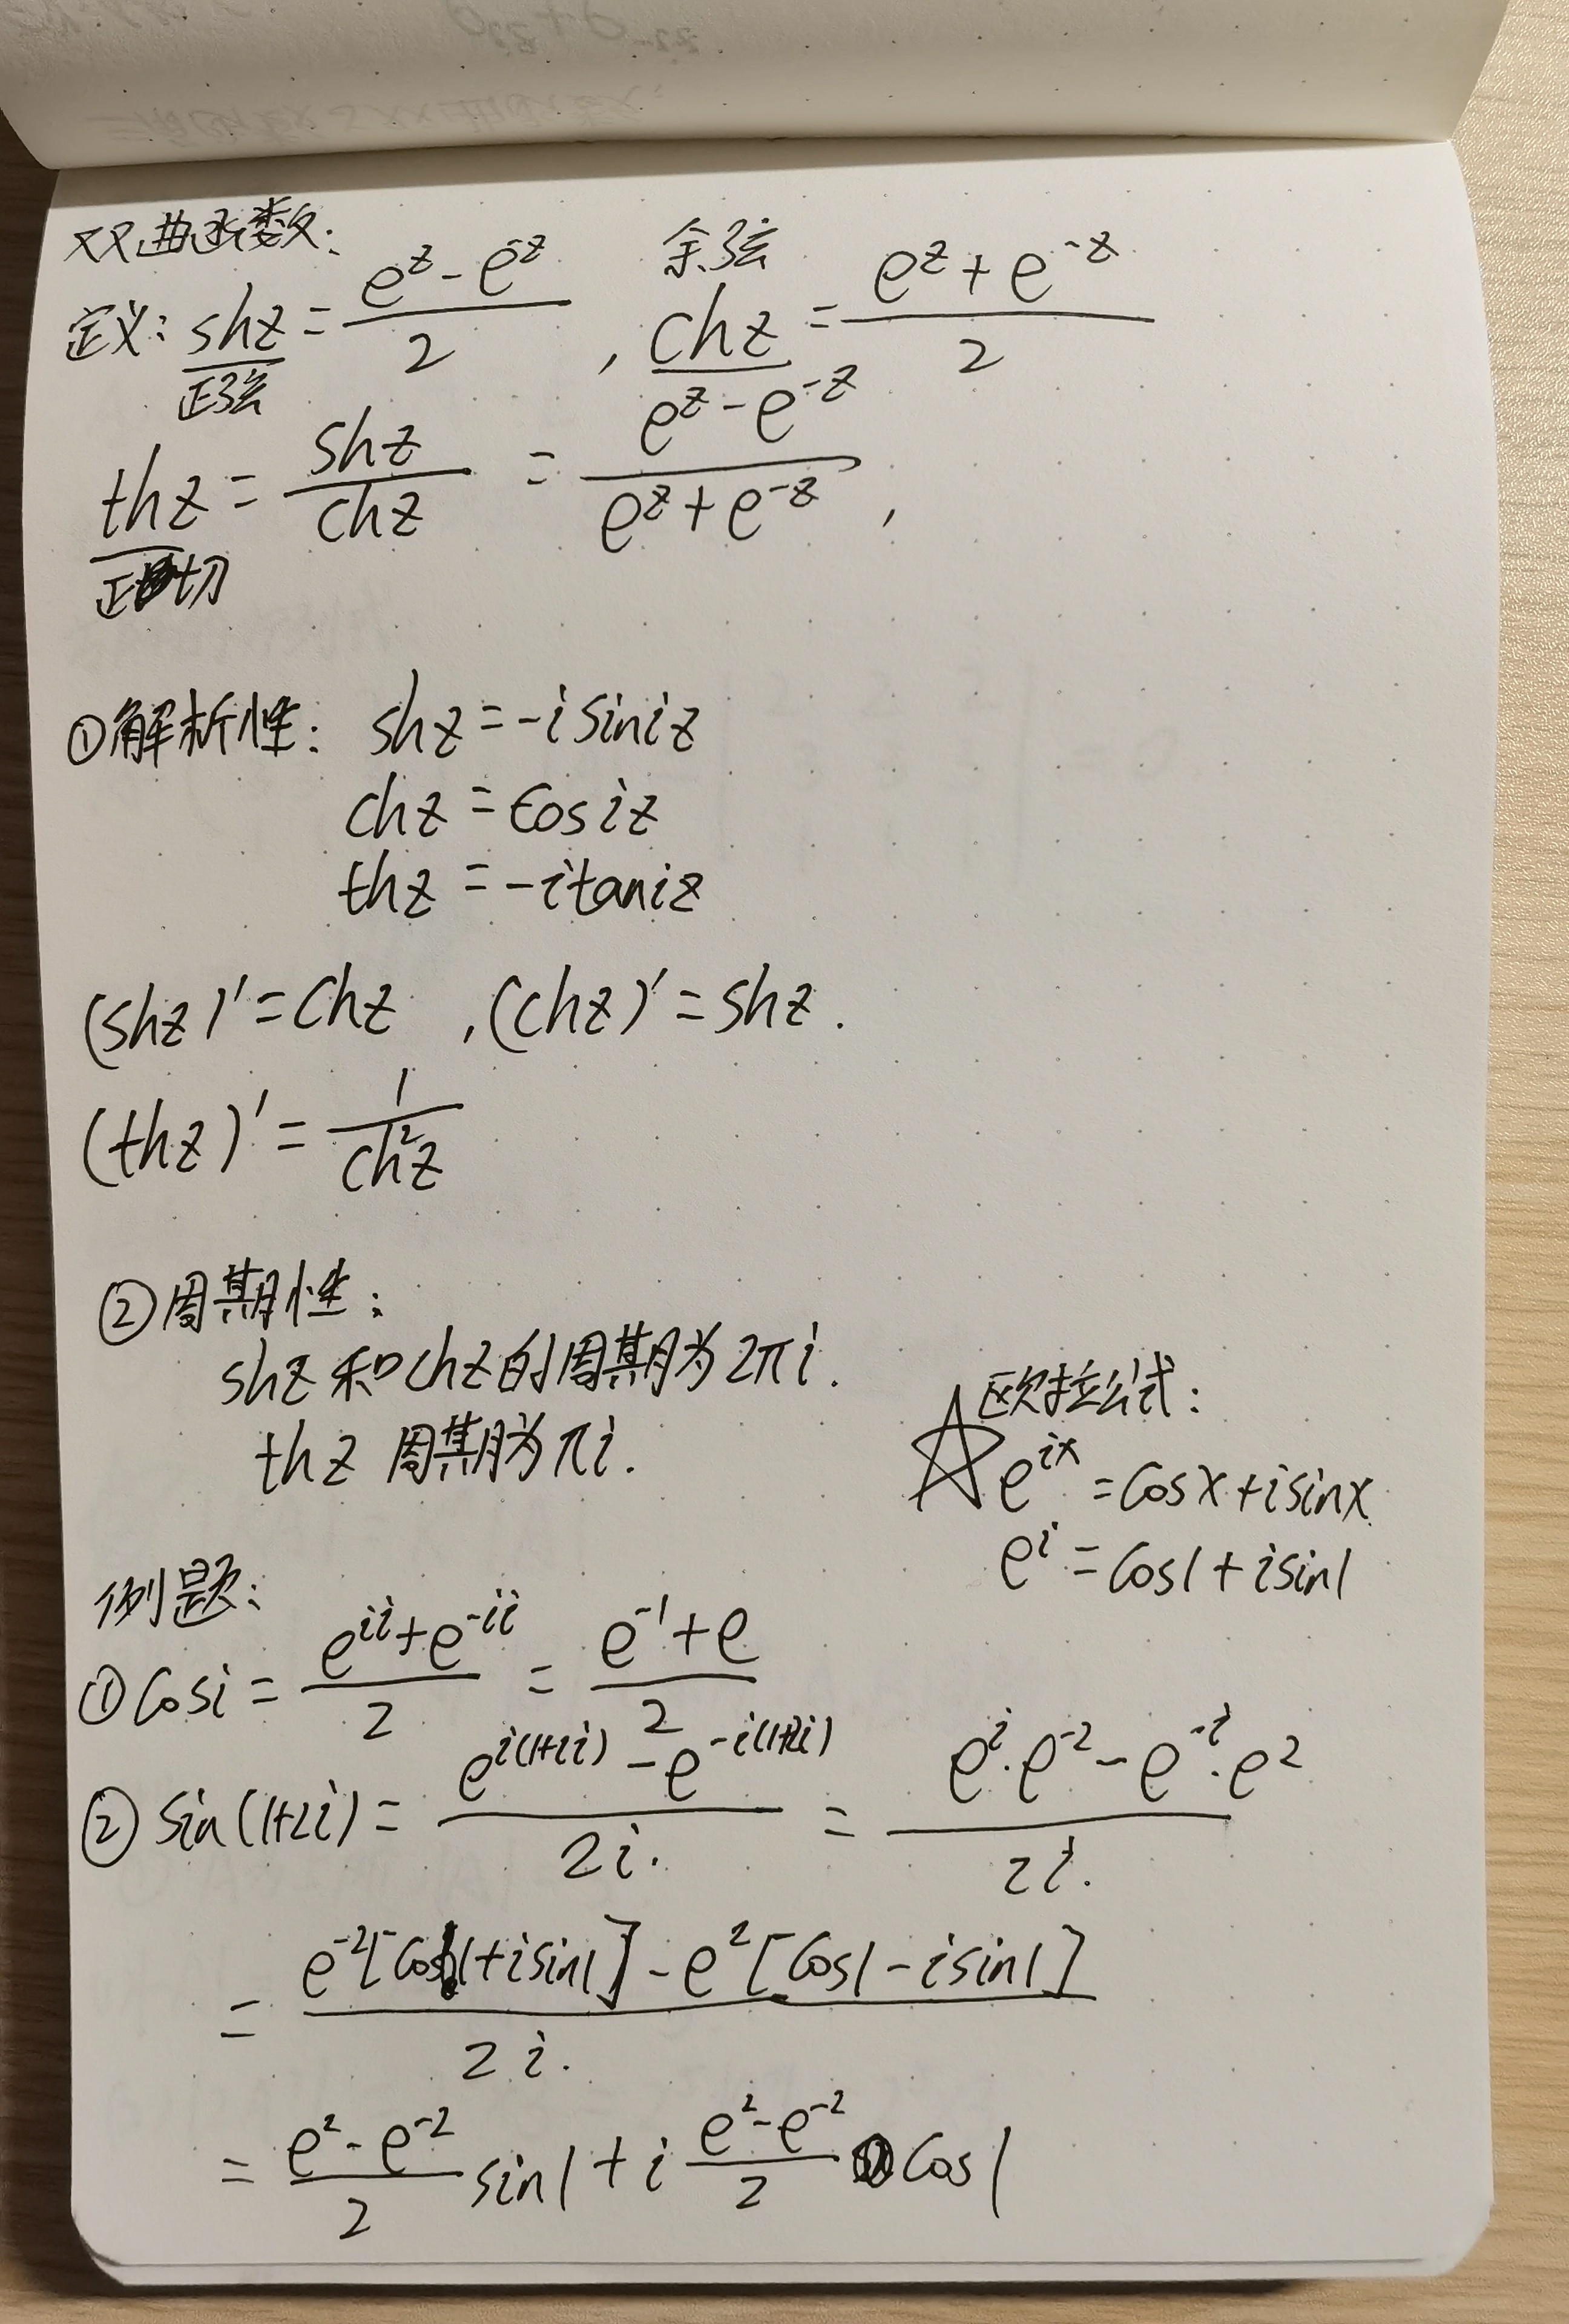 双曲函数: 余弦
定义: shz = (e^z - e^z)/2 , chz = (e^z + e^-z)/2
正弦
thz = shz/chz = (e^z - e^-z)/(e^z + e^-z) ,
正切
①解析性: shz = -i sin iz
chz = cos iz
thz = -i tan iz
(shz)' = chz , (chz)' = shz.
(thz)' = 1/ch²z
②周期性:
shz和chz的周期为2πi.
thz 周期为πi.
☆欧拉公式:
e^ix = cosx + isinx
e^i = cos1 + isin1
例题:
①cosi = (e^ii + e^-ii)/2 = (e^-1 + e)/2
②sin(1+2i) = (e^i(1+2i) - e^-i(1+2i))/2i. = (e^i·e^-2 - e^-i·e^2)/2i.
= (e^-2[cos1+isin1] - e^2[cos1-isin1])/2i.
= (e^2 - e^-2)/2 sin1 + i (e^2 - e^-2)/2 cos1